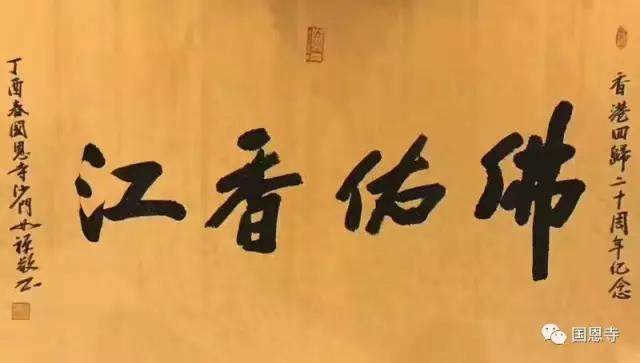 香港回歸二十周年纪念
佛佑香江
丁酉春國恩寺沙門如禅敬书
国恩寺